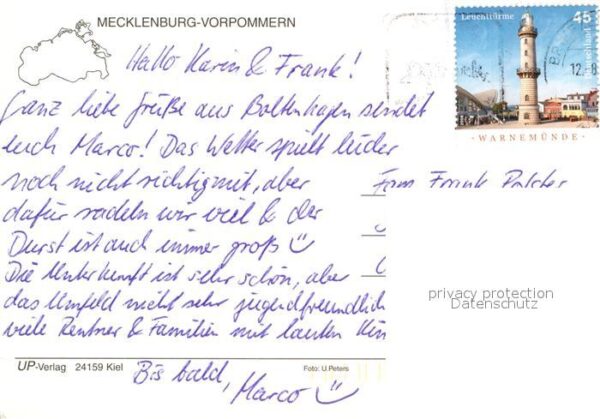 MECKLENBURG-VORPOMMERN
Hallo Karin & Frank!
Ganz liebe Grüße aus Boltenhagen sendet
euch Marco! Das Wetter spielt leider
noch nicht richtig mit, aber
dafür radeln wir viel & der
Durst ist auch immer groß
Die Unterkunft ist sehr schön, aber
das Umfeld nicht sehr jugendfreundlich
viele Rentner & Familien mit lauten Kin
Bis bald,
Marco
UP-Verlag 24159 Kiel
Foto: U.Peters
Leuchttürme
45
WARNEMÜNDE
12.
Fam Frank
privacy protection
Datenschutz